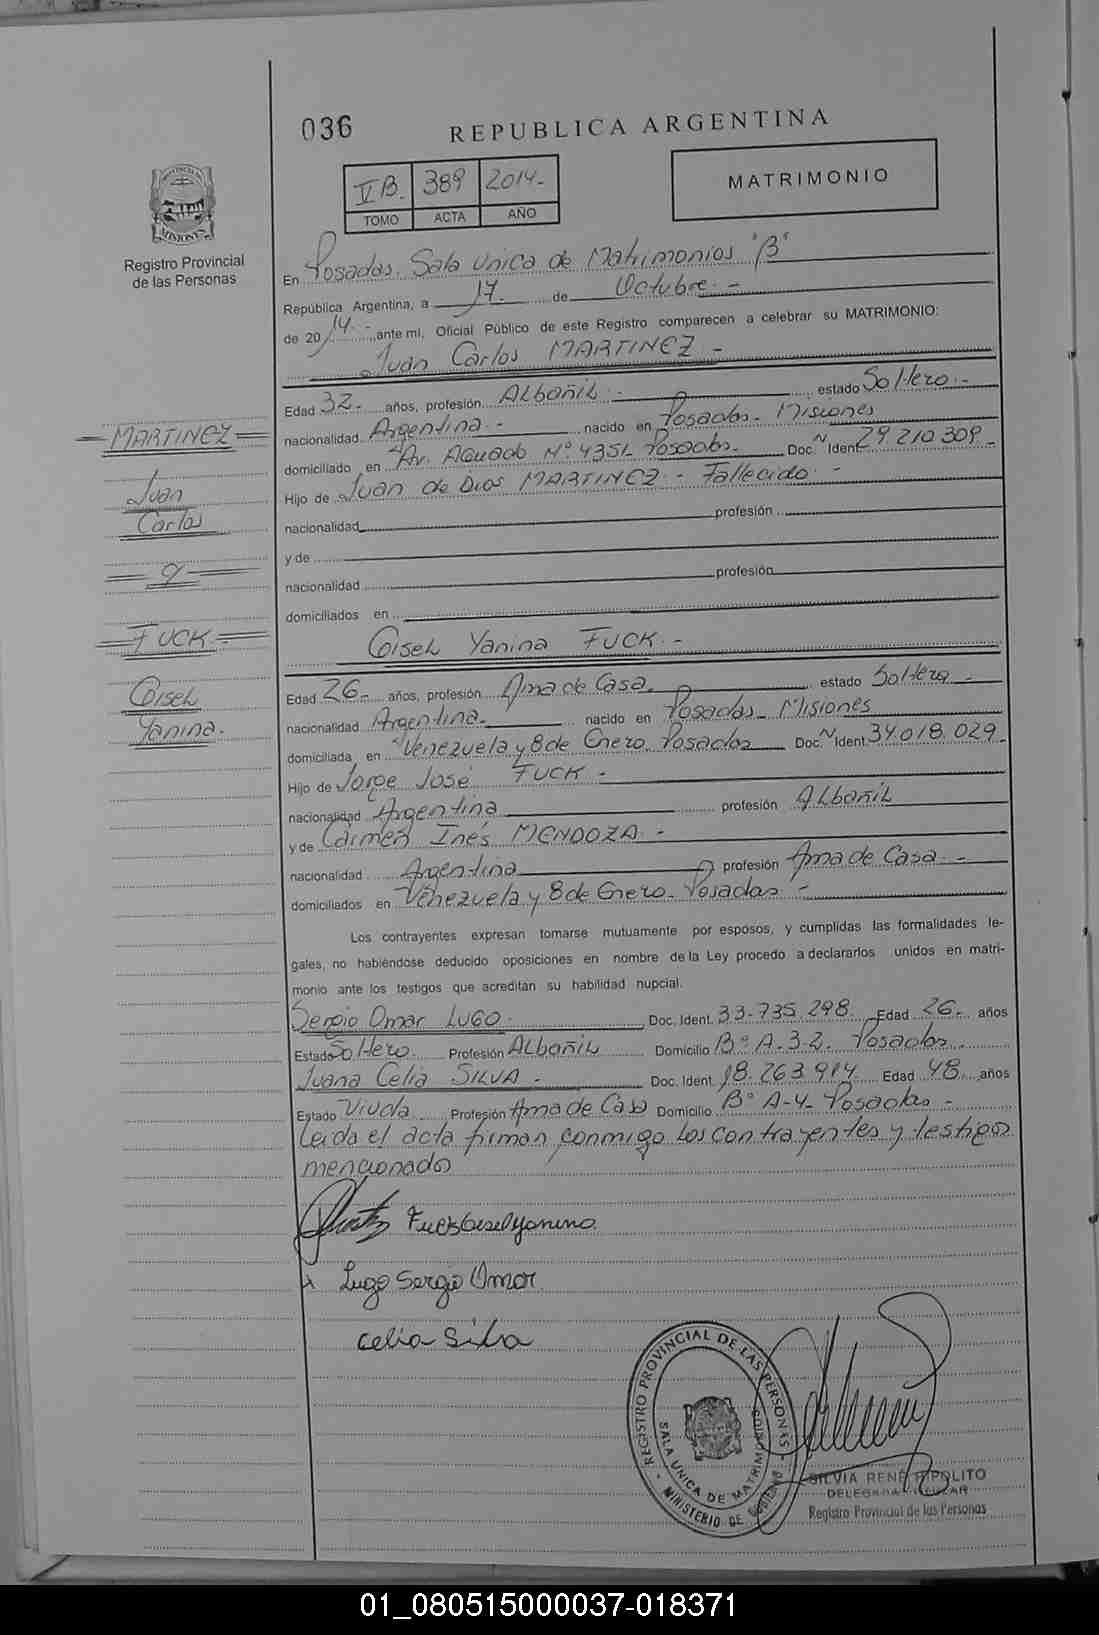 036
REPUBLICA ARGENTINA
V B. 389 2014-
TOMO ACTA AÑO
MATRIMONIO
PROVINCIA DE
MISIONES
Registro Provincial
de las Personas
En Posadas. Sala Unica de Matrimonios "B"
República Argentina, a 17. de Octubre. -
de 20 14. - ,ante mí, Oficial Público de este Registro comparecen a celebrar su MATRIMONIO:
Juan Carlos MARTINEZ -
Edad 32- años, profesión ALbañiL - estado SoLtero. -
nacionalidad Argentina. - nacido en Posadas- Misiones
domiciliado en Av. Aguado Nº 4351- Posadas- Doc. N Ident 29.210.309 -
Hijo de Juan de Dios MARTINEZ - Fallecido. -
nacionalidad profesión
y de
nacionalidad profesión
domiciliados en
GiseL Yanina FUCK. -
Edad 26- años, profesión Ama de Casa. estado SoLtera -
nacionalidad Argentina- nacido en Posadas- Misiones
domiciliada en Venezuela y 8 de Enero. Posadas Doc. N Ident. 34.018.029
Hijo de Jorge José FUCK -
nacionalidad Argentina profesión ALbañiL
y de Carmen Inés MENDOZA. -
nacionalidad Argentina profesión Ama de Casa. -
domiciliados en Venezuela y 8 de Enero- Posadas -
Los contrayentes expresan tomarse mutuamente por esposos, y cumplidas las formalidades le-
gales, no habiéndose deducido oposiciones en nombre de la Ley procedo a declararlos unidos en matri-
monio ante los testigos que acreditan su habilidad nupcial.
Sergio Omar LUGO. Doc. Ident. 33-735.298. Edad 26- años
Estado SoLtero. Profesión ALbañiL Domicilio Bº A.3-2. Posadas.
Juana Celia SILVA - Doc. Ident. 18.263.914. Edad 48. años
Estado Viuda Profesión Ama de Casa Domicilio Bº A-4- Posadas -
Leida el acta firman conmigo Los contrayentes y testigos
mencionado
MARTINEZ
Juan
Carlos
y
FUCK
GiseL
Yanina.
Fuck Gisel Yanina.
Lugo Sergio Omar
Celia Silva
REGISTRO PROVINCIAL DE LAS PERSONAS
SALA UNICA DE MATRIMONIOS
MINISTERIO DE GOBIERNO
SILVIA RENE HIPOLITO
DELEGADA TITULAR
Registro Provincial de las Personas
01_080515000037-018371